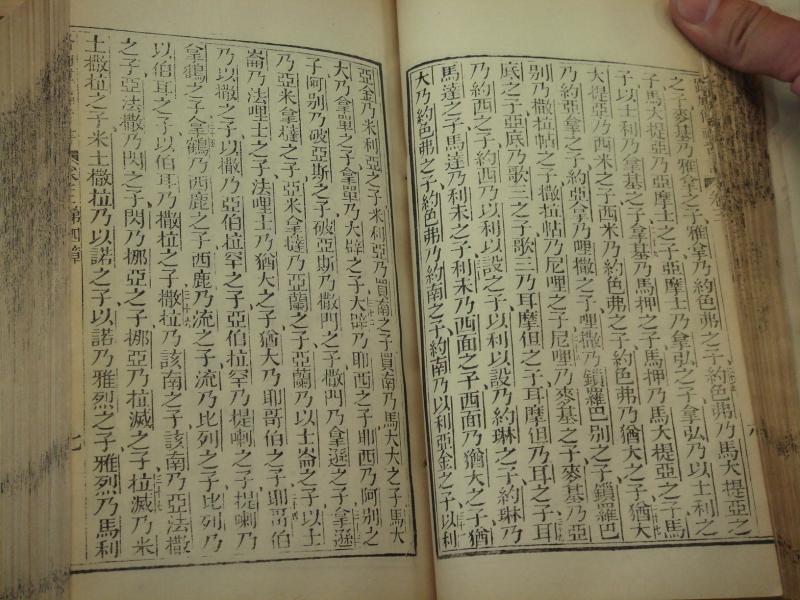 之子麥基乃雅拿之子雅拿乃約色弗之子約色弗乃馬大提亞之
子馬大提亞乃亞摩士之子亞摩士乃拿弘之子拿弘乃以士利之
子以士利乃拿基之子拿基乃馬押之子馬押乃馬大提亞之子馬
大提亞乃西米之子西米乃約色弗之子約色弗乃猶大之子猶大
乃約亞拿之子約亞拿乃哩撒之子哩撒乃鎖羅巴別之子鎖羅巴
別乃撒拉帖之子撒拉帖乃尼哩之子尼哩乃麥基之子麥基乃亞
底之子亞底乃歌三之子歌三乃耳摩但之子耳摩但乃耳之子耳
乃約西之子約西乃以利以設之子以利以設乃約琳之子約琳乃
馬達之子馬達乃利未之子利未乃西面之子西面乃猶大之子猶
大乃約色弗之子約色弗乃約南之子約南乃以利亞金之子以利
亞金乃米利亞之子米利亞乃買南之子買南乃馬大大之子馬大
大乃拿單之子拿單乃大辟之子大辟乃耶西之子耶西乃阿別之
子阿別乃破亞斯之子破亞斯乃撒門之子撒門乃拿遜之子拿遜
乃亞米拿撻之子亞米拿撻乃亞蘭之子亞蘭乃以士崙之子以士
崙乃法哩士之子法哩士乃猶大之子猶大乃耶哥伯之子耶哥伯
乃以撒之子以撒乃亞伯拉罕之子亞伯拉罕乃提喇之子提喇乃
拿鶴之子拿鶴乃西鹿之子西鹿乃流之子流乃比列之子比列乃
以伯耳之子以伯耳乃撒拉之子撒拉乃該南之子該南乃亞法撒
之子亞法撒乃閃之子閃乃挪亞之子挪亞乃拉滅之子拉滅乃米
土撒拉之子米土撒拉乃以諾之子以諾乃雅烈之子雅烈乃馬利
第四章 七